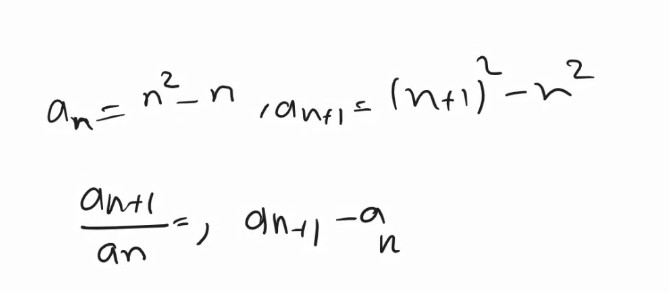 aₙ = n² - n , aₙ₊₁ = (n+1)² - n²
aₙ₊₁/aₙ = , aₙ₊₁ - aₙ